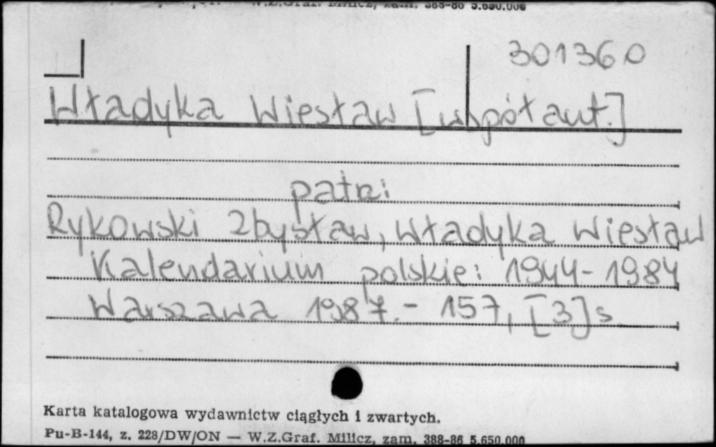 W.Z.Graf. Milicz, zam. 388-86 5.650.000
301360
Władyka Wiesław [współaut.]
patrz:
Rykowski Zbysław, Władyka Wiesław
Kalendarium polskie: 1944-1984
Warszawa 1987.- 157, [3] s
Karta katalogowa wydawnictw ciągłych i zwartych.
Pu-B-144, z. 228/DW/ON — W.Z.Graf. Milicz, zam. 388-86 5.650.000